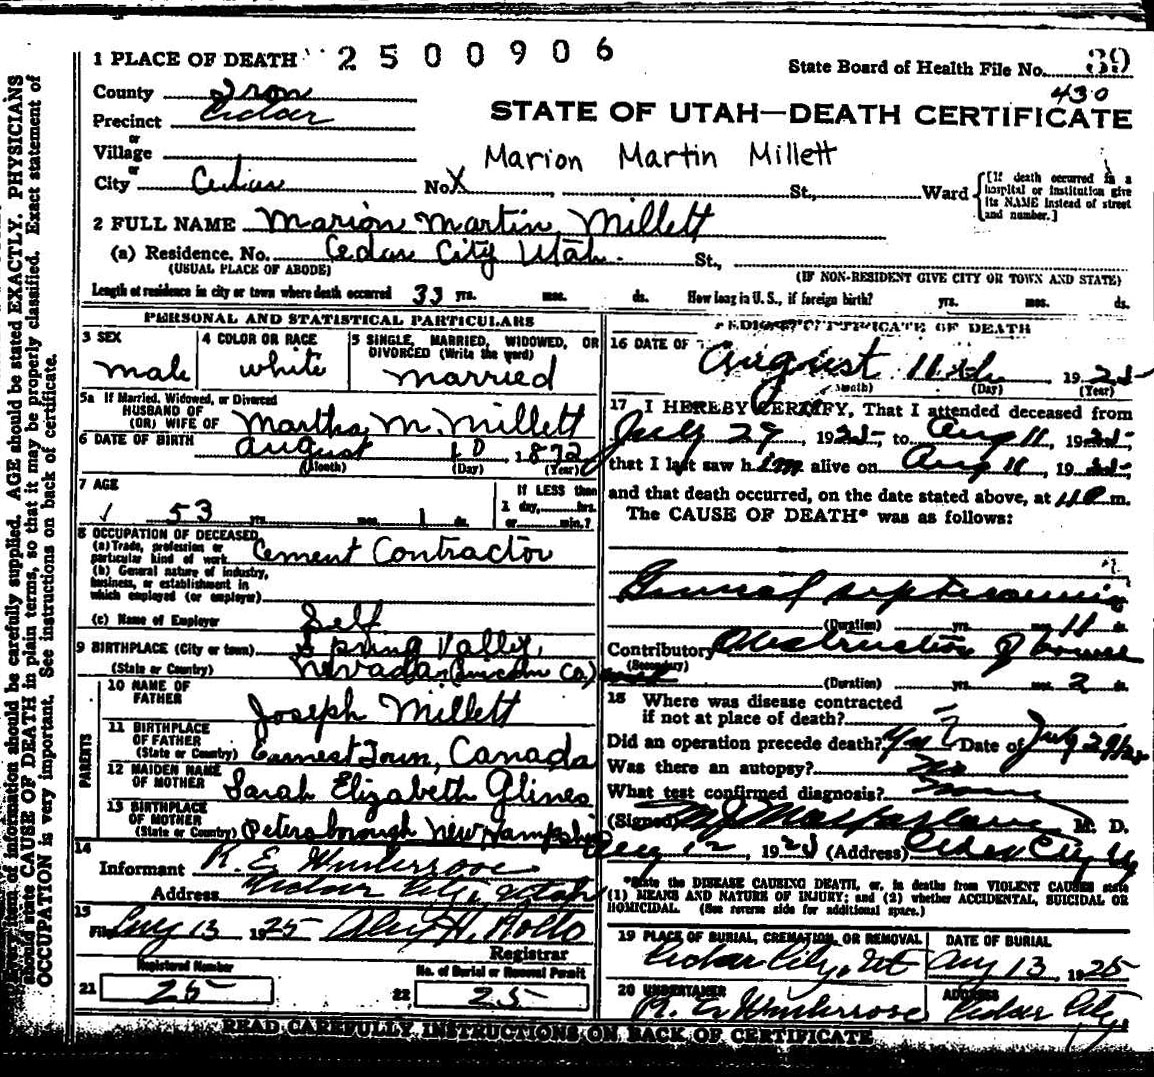 1 PLACE OF DEATH 2500906
State Board of Health File No. 39
430
County Iron
STATE OF UTAH—DEATH CERTIFICATE
Precinct Cedar
or
Village
Marion Martin Millett
or
City Cedar No. X St., Ward
[If death occurred in a hospital or institution give its NAME instead of street and number.]
2 FULL NAME Marion Martin Millett
(a) Residence. No. Cedar City Utah. St.,
(USUAL PLACE OF ABODE) (IF NON-RESIDENT GIVE CITY OR TOWN AND STATE)
Length of residence in city or town where death occurred 33 yrs. mos. ds. How long in U. S., if foreign birth? yrs. mos. ds.
PERSONAL AND STATISTICAL PARTICULARS
3 SEX
male
4 COLOR OR RACE
white
5 SINGLE, MARRIED, WIDOWED, OR DIVORCED (Write the word)
married
5a If Married, Widowed, or Divorced
HUSBAND OF
(OR) WIFE OF Martha M. Millett
6 DATE OF BIRTH
August 10, 1872
(Month) (Day) (Year)
7 AGE
53 yrs. mos. 1 ds.
If LESS than
1 day, hrs.
or min.?
8 OCCUPATION OF DECEASED
(a) Trade, profession or
particular kind of work Cement Contractor
(b) General nature of industry,
business, or establishment in
which employed (or employer)
(c) Name of Employer Self
9 BIRTHPLACE (City or town) Spring Valley,
(State or Country) Nevada (Lincoln Co)
PARENTS
10 NAME OF
FATHER Joseph Millett
11 BIRTHPLACE
OF FATHER
(State or Country) Earnest Town, Canada
12 MAIDEN NAME
OF MOTHER Sarah Elizabeth Glines
13 BIRTHPLACE
OF MOTHER
(State or Country) Petersborough New Hampshire
14
Informant
Address Cedar City, Utah
15
Filed Aug 13 1925
Registrar
Registered Number
21 25
No. of Burial or Removal Permit
22 25
MEDICAL CERTIFICATE OF DEATH
16 DATE OF
August 11th, 1925
(Month) (Day) (Year)
17 I HEREBY CERTIFY, That I attended deceased from
July 29, 1925, to Aug 11, 1925,
that I last saw him alive on Aug 11, 1925,
and that death occurred, on the date stated above, at m.
The CAUSE OF DEATH* was as follows:
General septicemia
(Duration) yrs. mos. 11 ds.
Contributory Obstruction of bowel
(Secondary)
(Duration) yrs. mos. 2 ds.
18 Where was disease contracted
if not at place of death? ?
Did an operation precede death? Yes Date of July 29/25
Was there an autopsy? No
What test confirmed diagnosis? None
(Signed) M J Macfarlane M. D.
Aug 12, 1925 (Address) Cedar City U
*State the DISEASE CAUSING DEATH, or, in deaths from VIOLENT CAUSES state
(1) MEANS AND NATURE OF INJURY; and (2) whether ACCIDENTAL, SUICIDAL OR
HOMICIDAL. (See reverse side for additional space.)
19 PLACE OF BURIAL, CREMATION, OR REMOVAL
Cedar City, Ut
DATE OF BURIAL
Aug 13, 1925
20 UNDERTAKER
ADDRESS
Cedar City,
READ CAREFULLY INSTRUCTIONS ON BACK OF CERTIFICATE
Every item of information should be carefully supplied. AGE should be stated EXACTLY. PHYSICIANS
should state CAUSE OF DEATH in plain terms, so that it may be properly classified. Exact statement of
OCCUPATION is very important. See instructions on back of certificate.